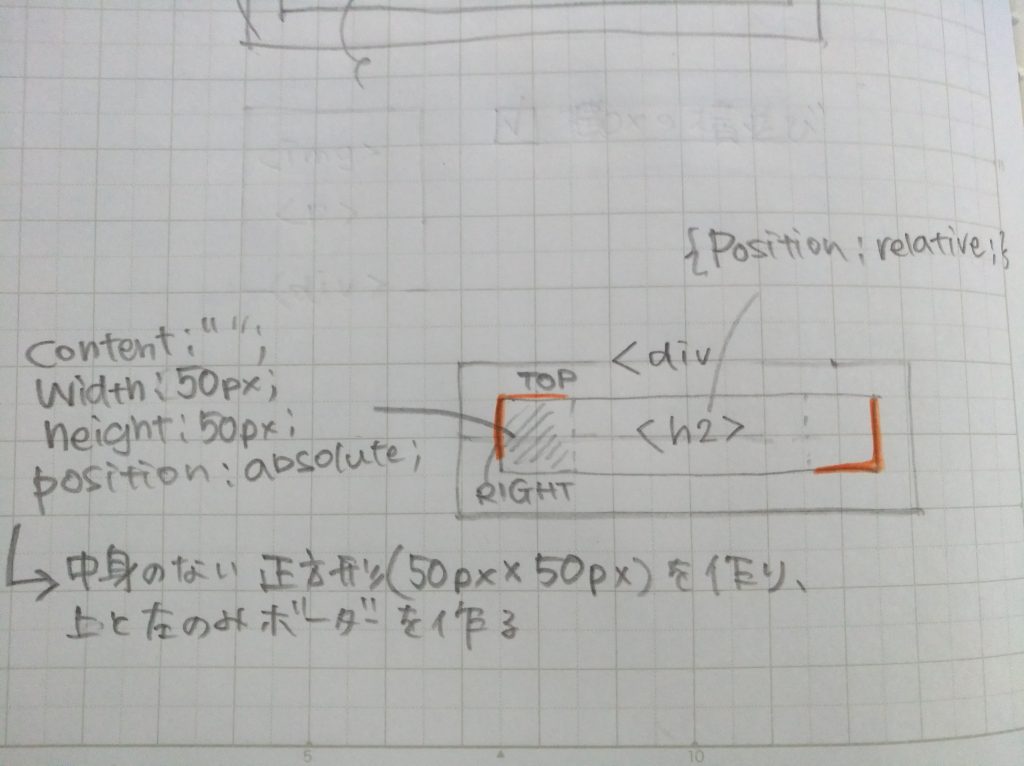 {Position:relative;}
content:"";
width:50px;
height:50px;
position:absolute;
<div
TOP
<h2>
RIGHT
中身のない正方形(50px×50px)を作り、
上と左のみボーダーを作る
5
10